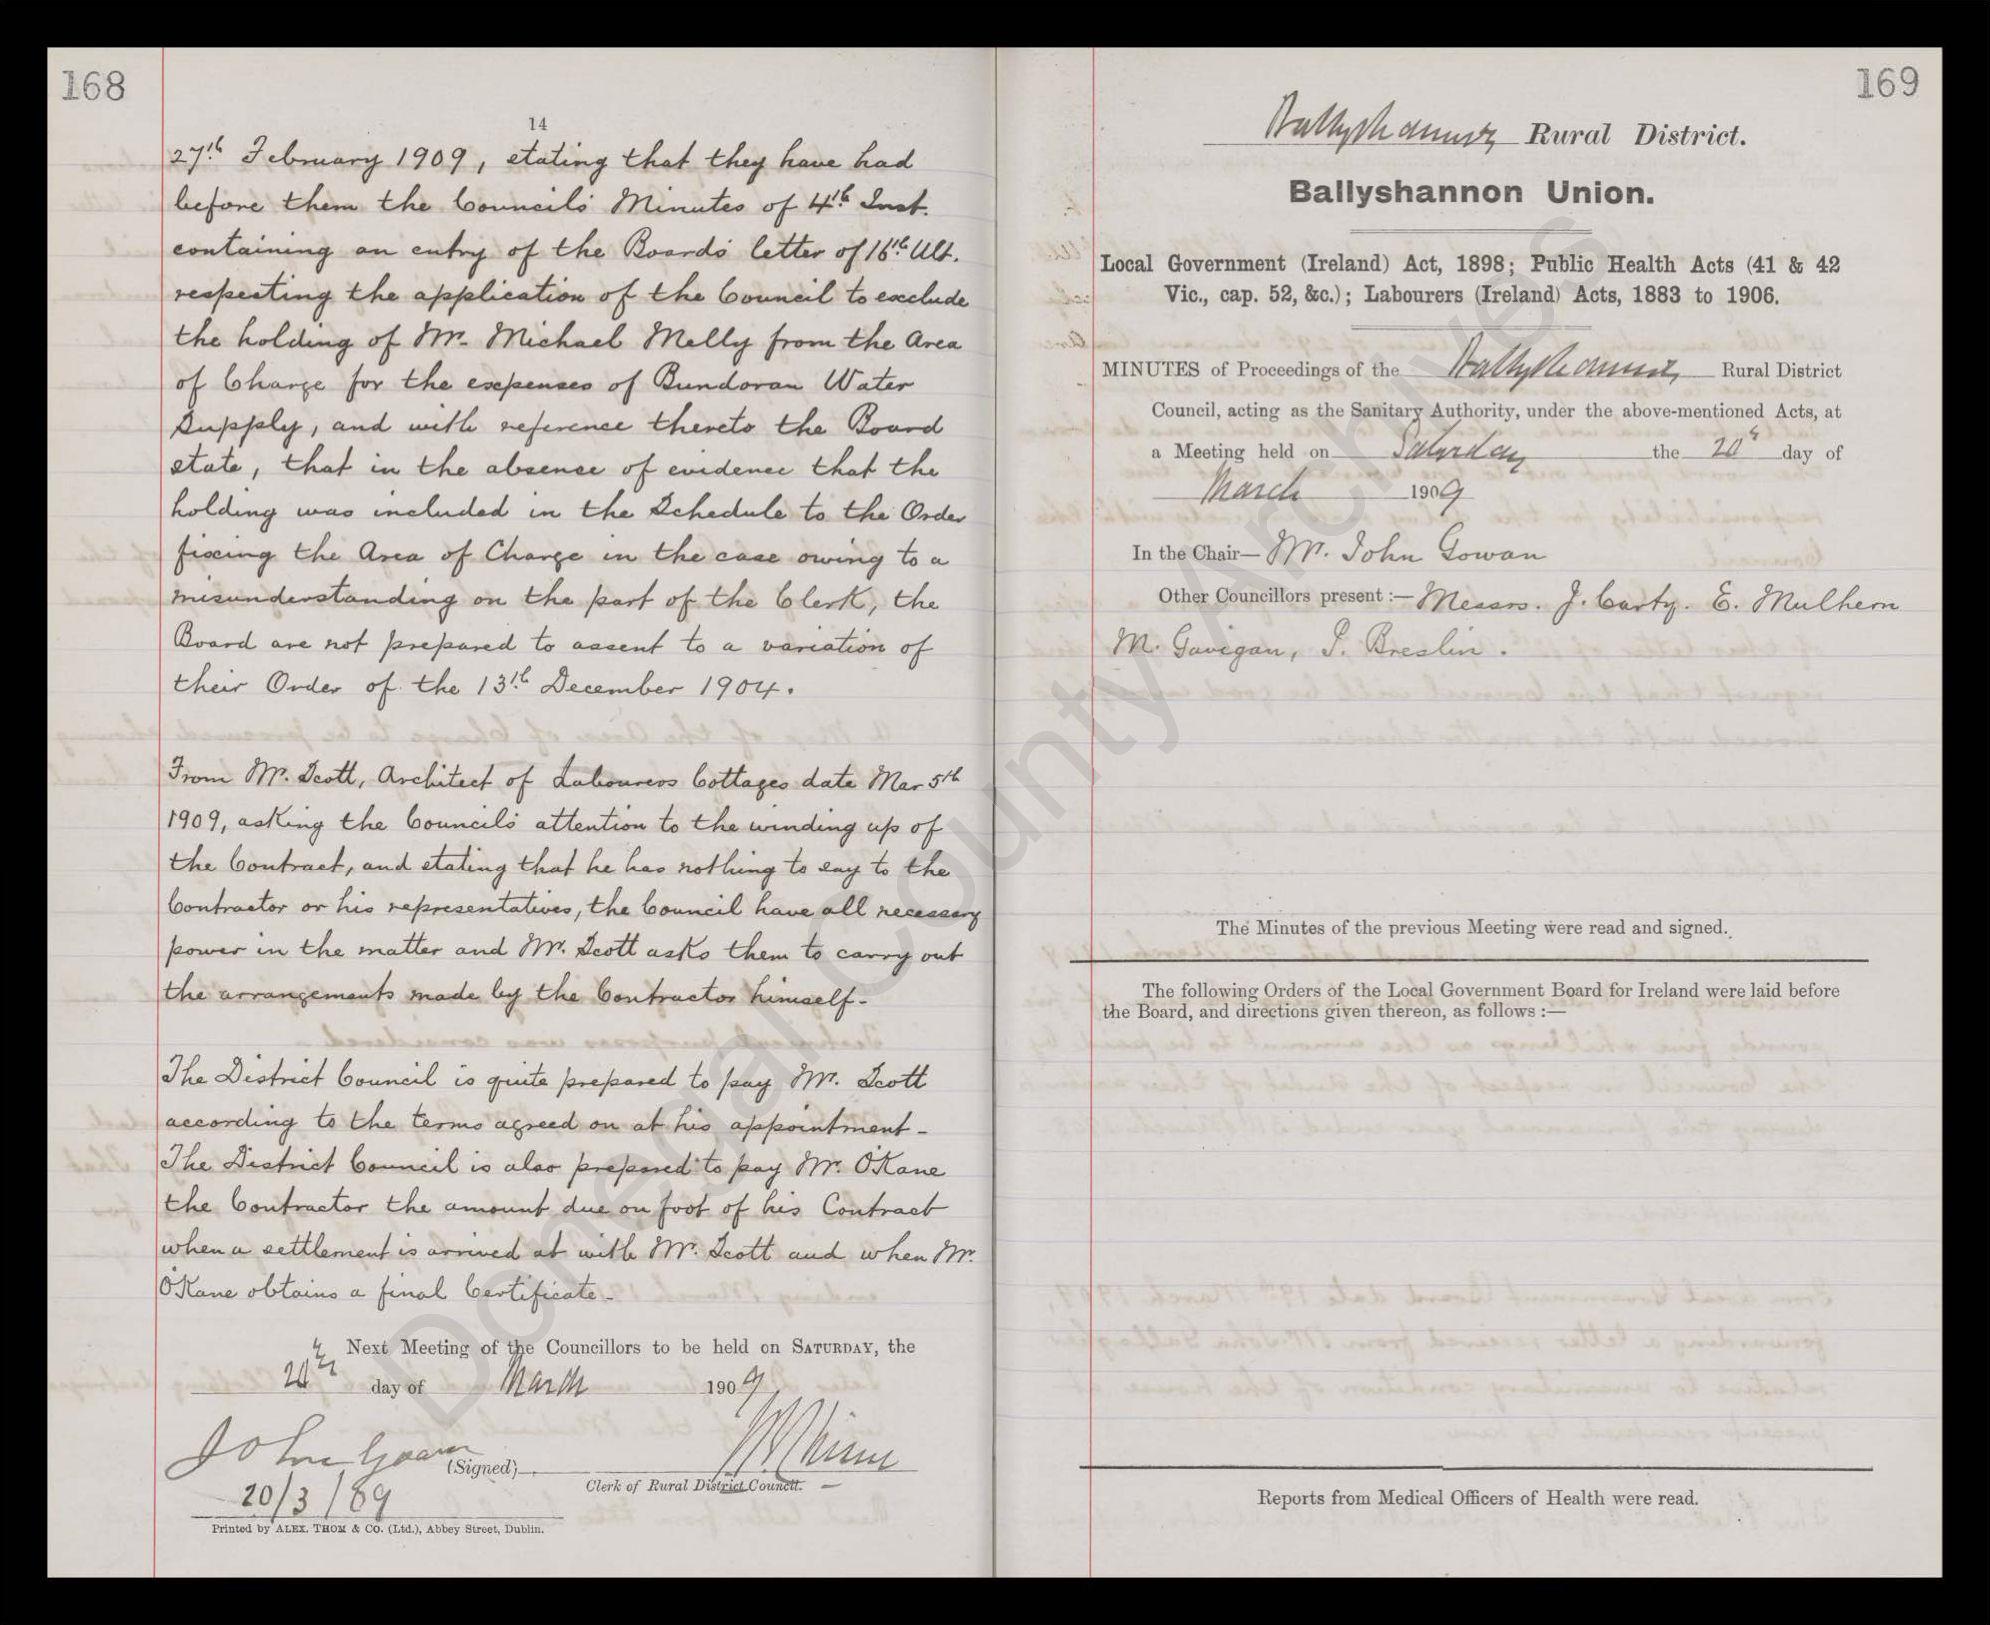 168
14
27th February 1909, stating that they have had
before them the Council's Minutes of 4th Inst.
containing an entry of the Board's letter of 16th Ult.
respecting the application of the Council to exclude
the holding of Mr. Michael Melly from the Area
of Charge for the expenses of Bundoran Water
Supply, and with reference thereto the Board
state, that in the absence of evidence that the
holding was included in the Schedule to the Order
fixing the Area of Charge in the case owing to a
misunderstanding on the part of the Clerk, the
Board are not prepared to assent to a variation of
their Order of the 13th December 1904.
From Mr. Scott, Architect of Labourers Cottages date Mar 5th
1909, asking the Council's attention to the winding up of
the Contract, and stating that he has nothing to say to the
Contractor or his representatives, the Council have all necessary
power in the matter and Mr. Scott asks them to carry out
the arrangements made by the Contractor himself-
The District Council is quite prepared to pay Mr. Scott
according to the terms agreed on at his appointment-
The District Council is also prepared to pay Mr. O'Kane
the Contractor the amount due on foot of his Contract
when a settlement is arrived at with Mr. Scott and when Mr.
O'Kane obtains a final Certificate-
Next Meeting of the Councillors to be held on SATURDAY, the
20th day of March 1909
John Gowan (Signed)
Clerk of Rural District Council.
20/3/09
Printed by ALEX. THOM & CO. (Ltd.), Abbey Street, Dublin.
169
Ballyshannon Rural District.
Ballyshannon Union.
Local Government (Ireland) Act, 1898; Public Health Acts (41 & 42
Vic., cap. 52, &c.); Labourers (Ireland) Acts, 1883 to 1906.
MINUTES of Proceedings of the Ballyshannon Rural District
Council, acting as the Sanitary Authority, under the above-mentioned Acts, at
a Meeting held on Saturday the 20th day of
March 1909
In the Chair— Mr. John Gowan
Other Councillors present :— Messrs. J. Carty. E. Mulhern
M. Gavigan, P. Breslin.
The Minutes of the previous Meeting were read and signed.
The following Orders of the Local Government Board for Ireland were laid before
the Board, and directions given thereon, as follows :—
Reports from Medical Officers of Health were read.
Donegal County Archives